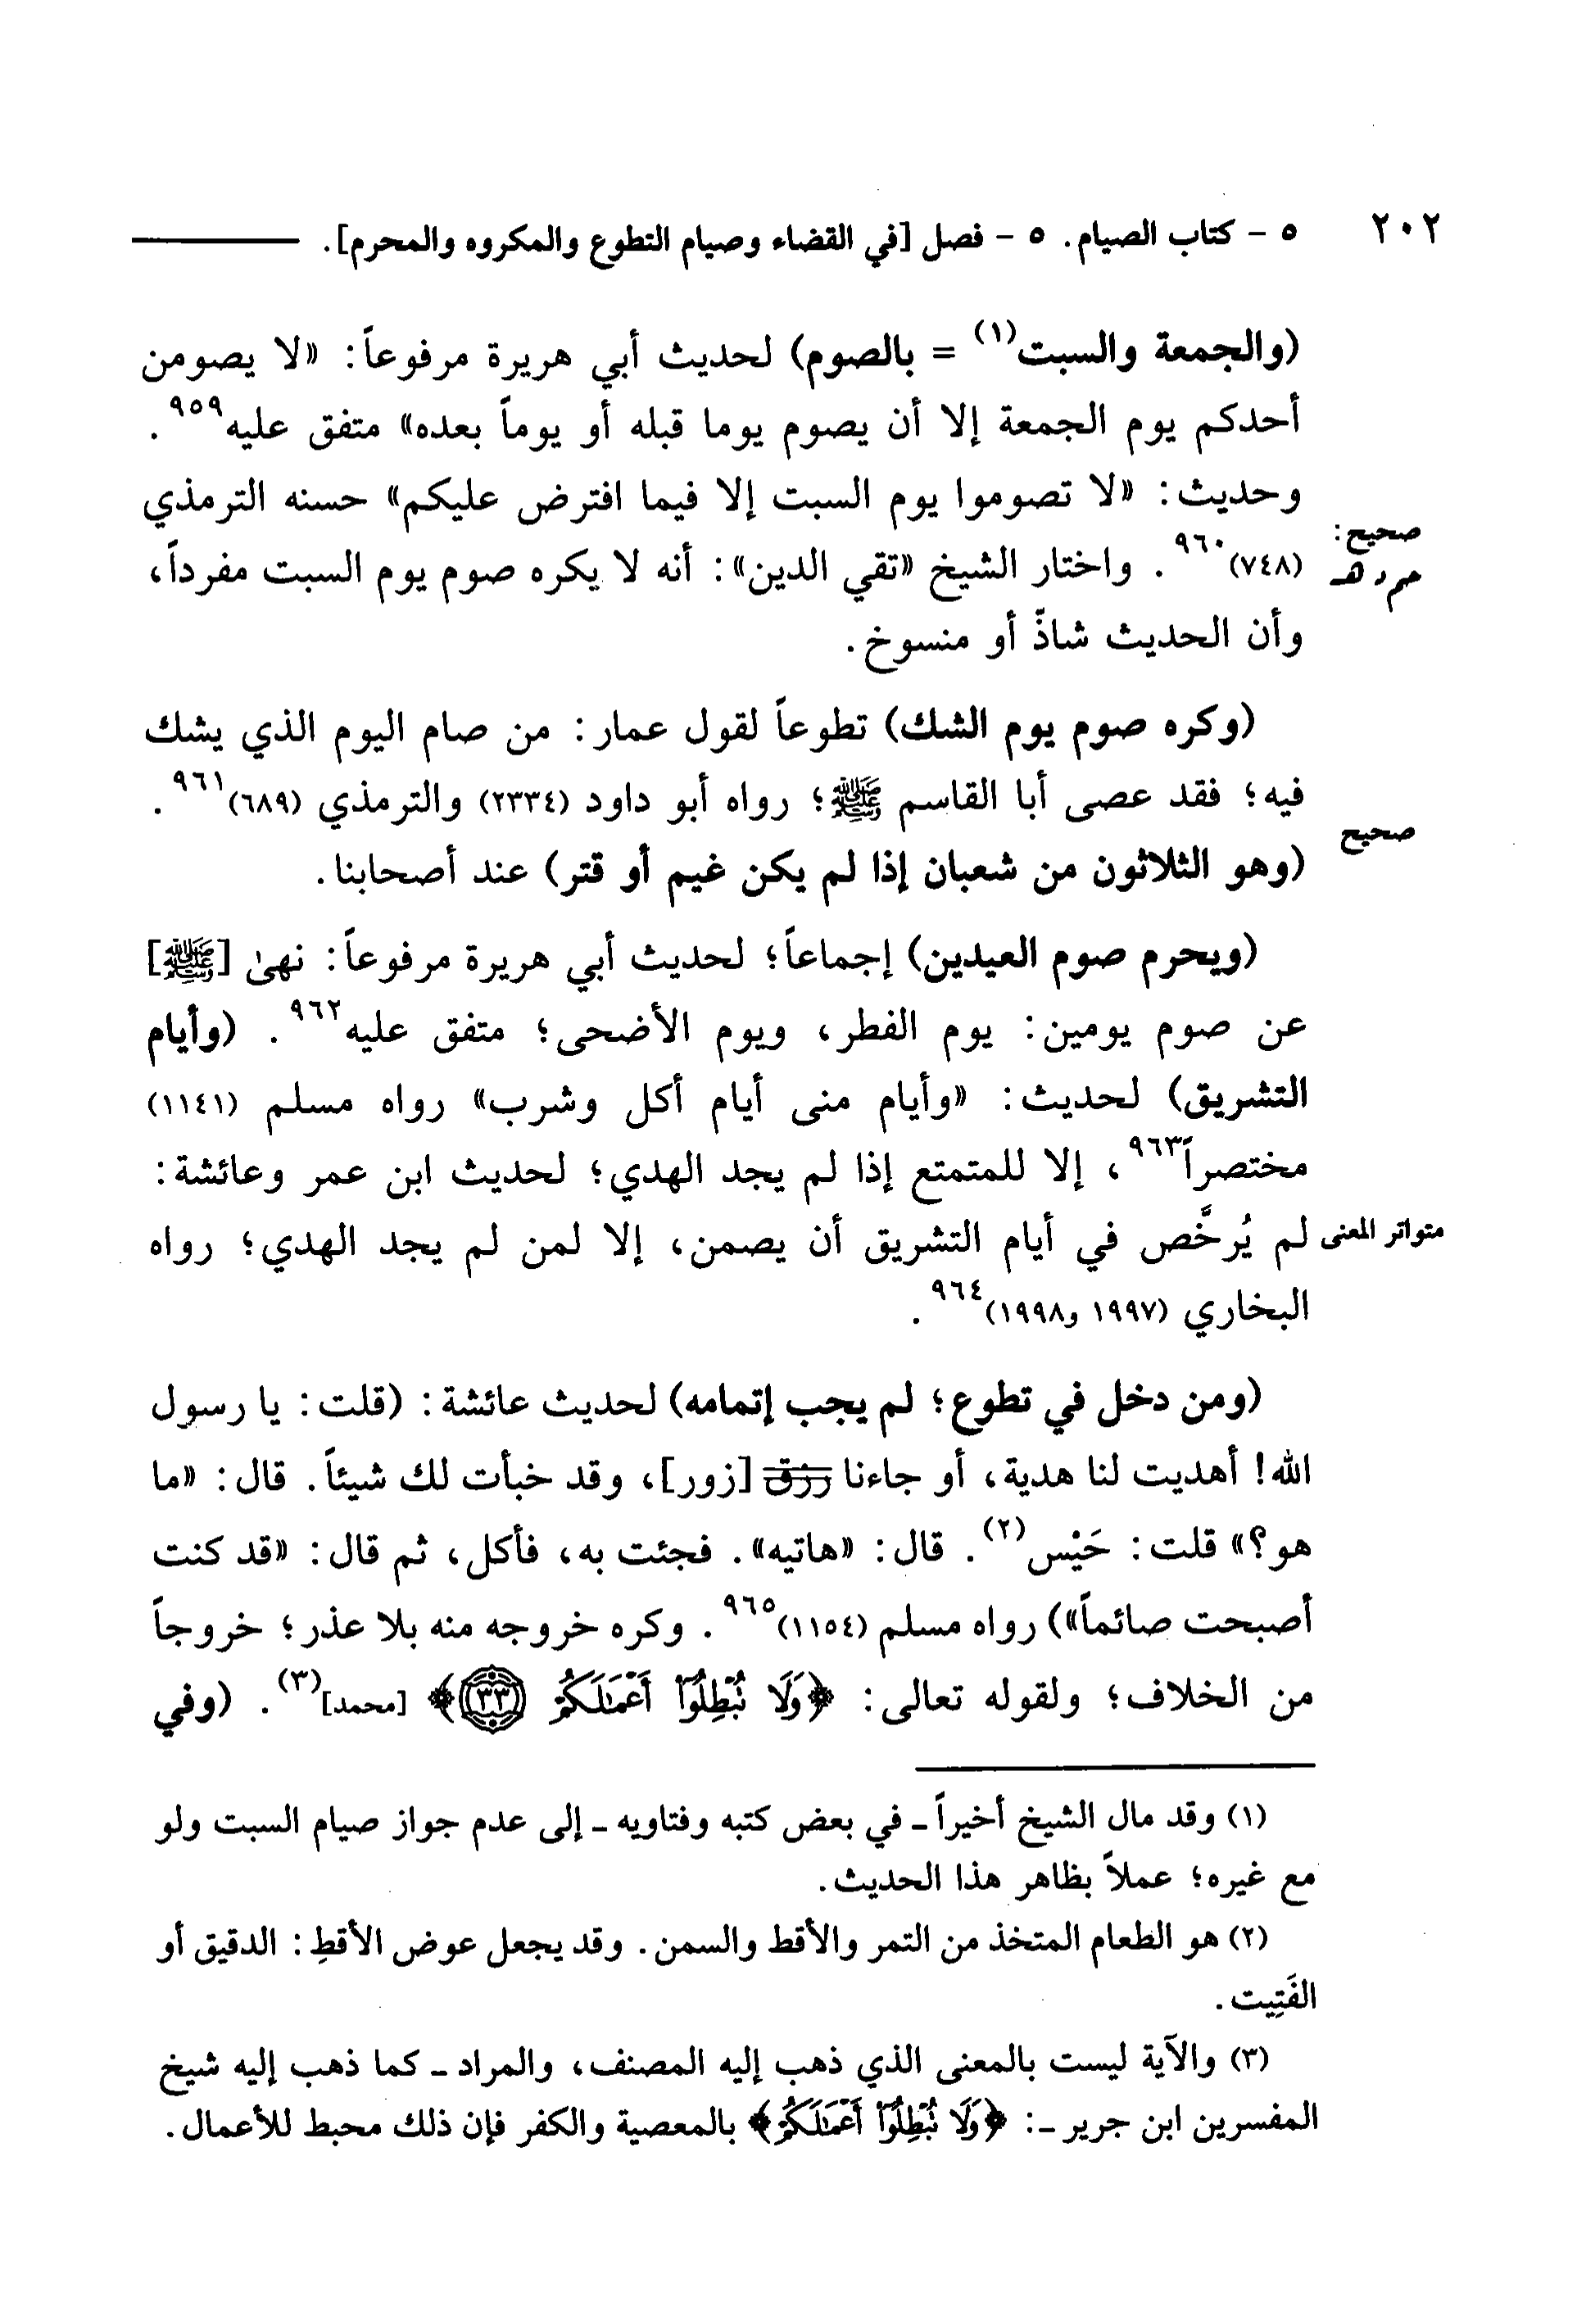 ٢٠٢ ٥ - كتاب الصيام. ٥ - فصل [في القضاء وصيام التطوع والمكروه والمحرم].
(والجمعة والسبت(١) = بالصوم) لحديث أبي هريرة مرفوعاً: «لا يصومن
أحدكم يوم الجمعة إلا أن يصوم يوما قبله أو يوماً بعده» متفق عليه٩٥٩.
وحديث: «لا تصوموا يوم السبت إلا فيما افترض عليكم» حسنه الترمذي
صحيح:
(٧٤٨)٩٦٠. واختار الشيخ «تقي الدين»: أنه لا يكره صوم يوم السبت مفرداً،
وأن الحديث شاذّ أو منسوخ.
(وكره صوم يوم الشك) تطوعاً لقول عمار: من صام اليوم الذي يشك
فيه؛ فقد عصى أبا القاسم ﷺ؛ رواه أبو داود (٢٣٣٤) والترمذي (٦٨٩)٩٦١.
صحيح
(وهو الثلاثون من شعبان إذا لم يكن غيم أو قتر) عند أصحابنا.
(ويحرم صوم العيدين) إجماعاً؛ لحديث أبي هريرة مرفوعاً: نهىٰ [ﷺ]
عن صوم يومين: يوم الفطر، ويوم الأضحى؛ متفق عليه٩٦٢. (وأيام
التشريق) لحديث: «وأيام منى أيام أكل وشرب» رواه مسلم (١١٤١)
مختصراً٩٦٣، إلا للمتمتع إذا لم يجد الهدي؛ لحديث ابن عمر وعائشة:
متواتر المعنى لم يُرخَّص في أيام التشريق أن يصمن، إلا لمن لم يجد الهدي؛ رواه
البخاري (١٩٩٧ و١٩٩٨)٩٦٤.
(ومن دخل في تطوع؛ لم يجب إتمامه) لحديث عائشة: (قلت: يا رسول
الله! أهديت لنا هدية، أو جاءنا رزق [زور]، وقد خبأت لك شيئاً. قال: «ما
هو؟» قلت: حَيْس(٢). قال: «هاتيه». فجئت به، فأكل، ثم قال: «قد كنت
أصبحت صائماً») رواه مسلم (١١٥٤)٩٦٥. وكره خروجه منه بلا عذر؛ خروجاً
من الخلاف؛ ولقوله تعالى: ﴿وَلَا نُبْطِلُوٓا۟ أَعْمَٰلَكُمْ ٣٣﴾ [محمد](٣). (وفي
(١) وقد مال الشيخ أخيراً ـ في بعض كتبه وفتاويه ـ إلى عدم جواز صيام السبت ولو
مع غيره؛ عملاً بظاهر هذا الحديث.
(٢) هو الطعام المتخذ من التمر والأقط والسمن. وقد يجعل عوض الأقطِ: الدقيق أو
الفَتِيت.
(٣) والآية ليست بالمعنى الذي ذهب إليه المصنف، والمراد ـ كما ذهب إليه شيخ
المفسرين ابن جرير ـ: ﴿وَلَا نُبْطِلُوٓا۟ أَعْمَٰلَكُمْ﴾ بالمعصية والكفر فإن ذلك محبط للأعمال.